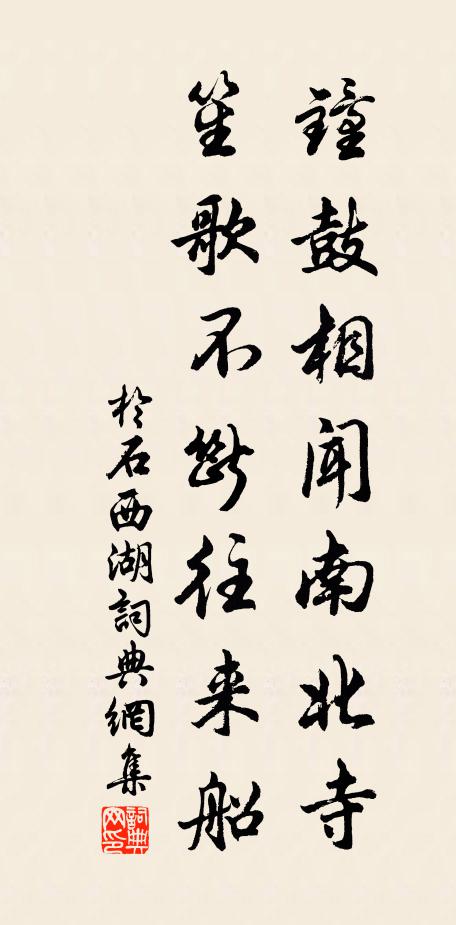 鐘鼓相闻南北寺
笙歌不斷往来船
於石西湖詞典網集
詞典網印